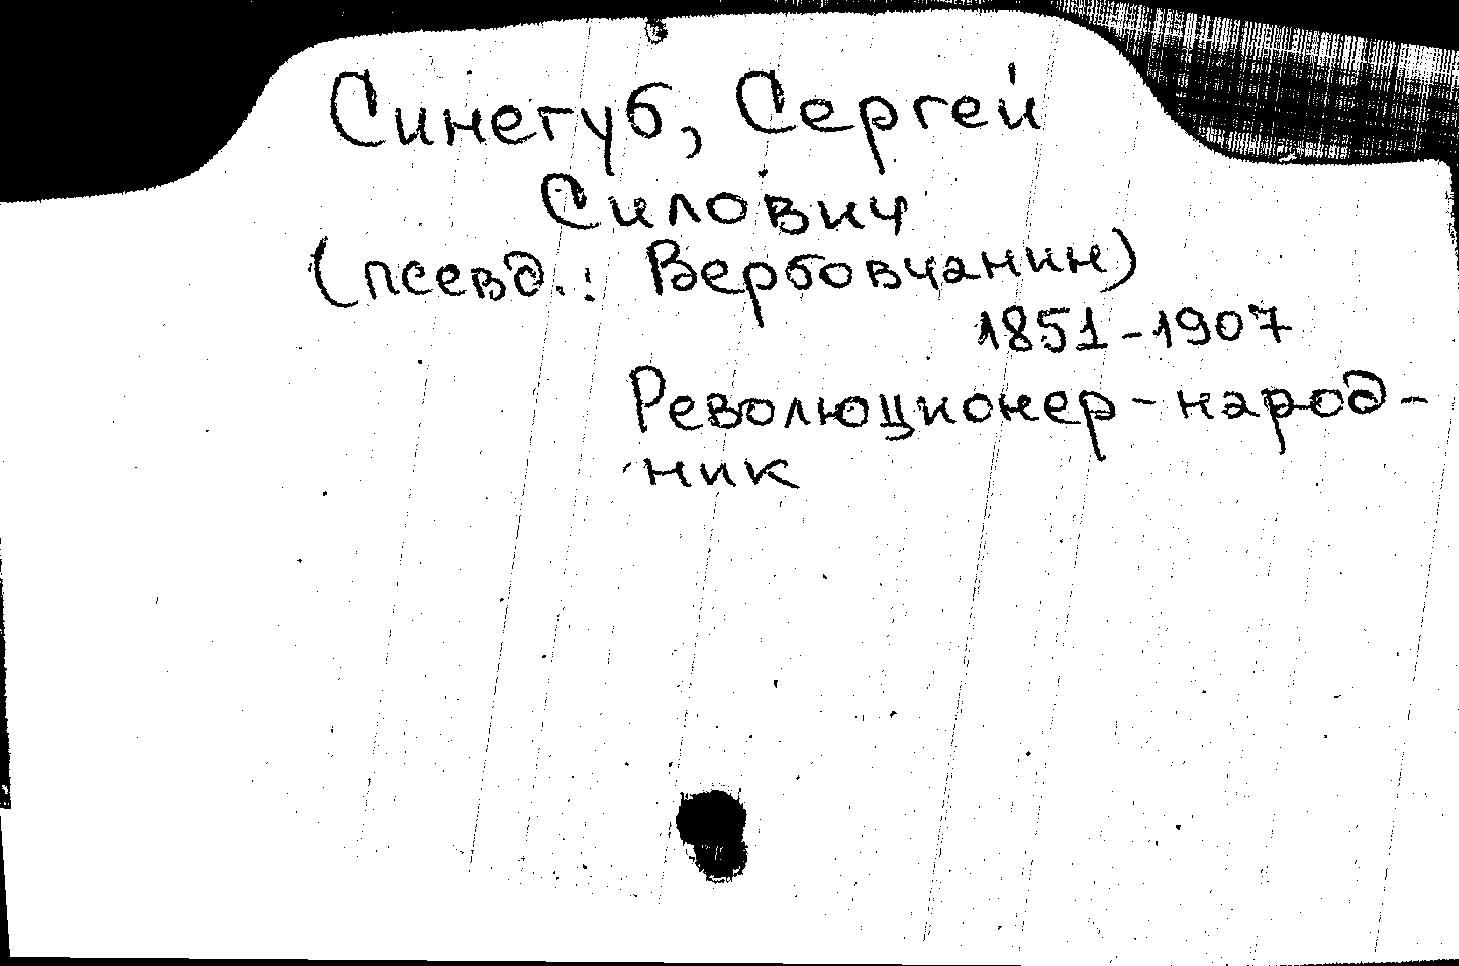 Синегуб, Сергей
Силович
(псевд.: Вербовчанин)
1851-1907
Революционер-народ-
ник